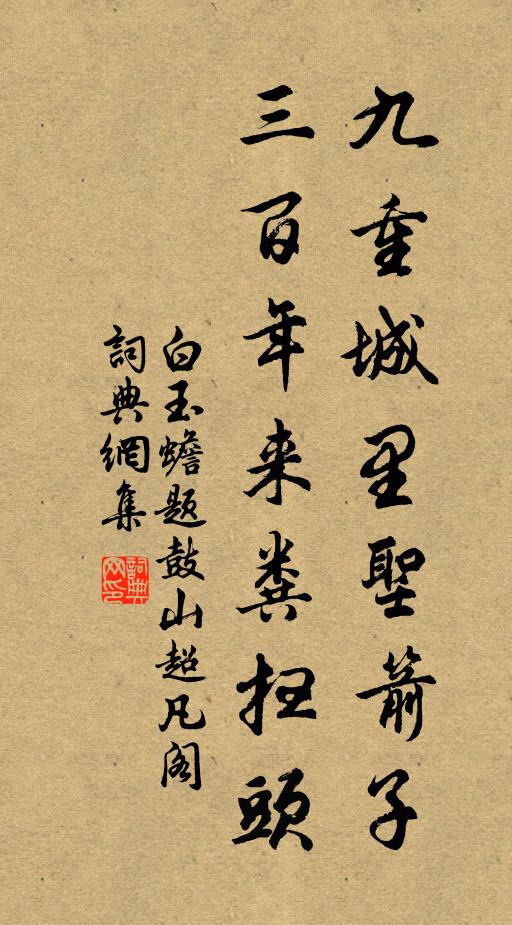 九重城里聖箭子
三百年来粪扫頭
白玉蟾题鼓山超凡阁
詞典網集
詞典網印